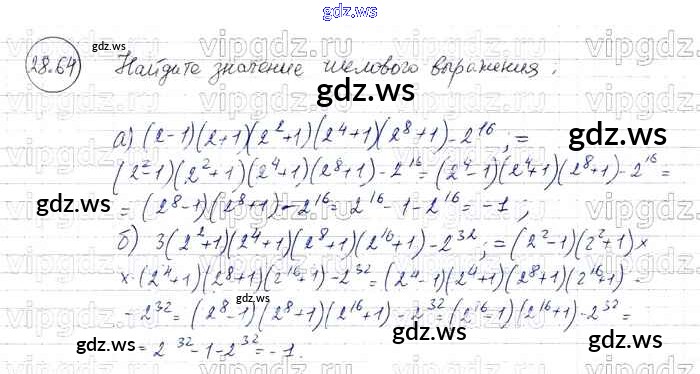 gdz.ws
28.64 Найдите значение числового выражения:
gdz.ws
gdz.ws
а) (2-1)(2+1)(2²+1)(2⁴+1)(2⁸+1)-2¹⁶; =
(2²-1)(2²+1)(2⁴+1)(2⁸+1)-2¹⁶=(2⁴-1)(2⁴+1)(2⁸+1)-2¹⁶=
=(2⁸-1)(2⁸+1)-2¹⁶=2¹⁶-1-2¹⁶=-1;
gdz.ws
gdz.ws
б) 3(2²+1)(2⁴+1)(2⁸+1)(2¹⁶+1)-2³²; =(2²-1)(2²+1)×
×(2⁴+1)(2⁸+1)(2¹⁶+1)-2³²=(2⁴-1)(2⁴+1)(2⁸+1)(2¹⁶+1)-
-2³²=(2⁸-1)(2⁸+1)(2¹⁶+1)-2³²=(2¹⁶-1)(2¹⁶+1)-2³²=
gdz.ws
=2³²-1-2³²=-1.
gdz.ws
gdz.ws
vipgdz.ru